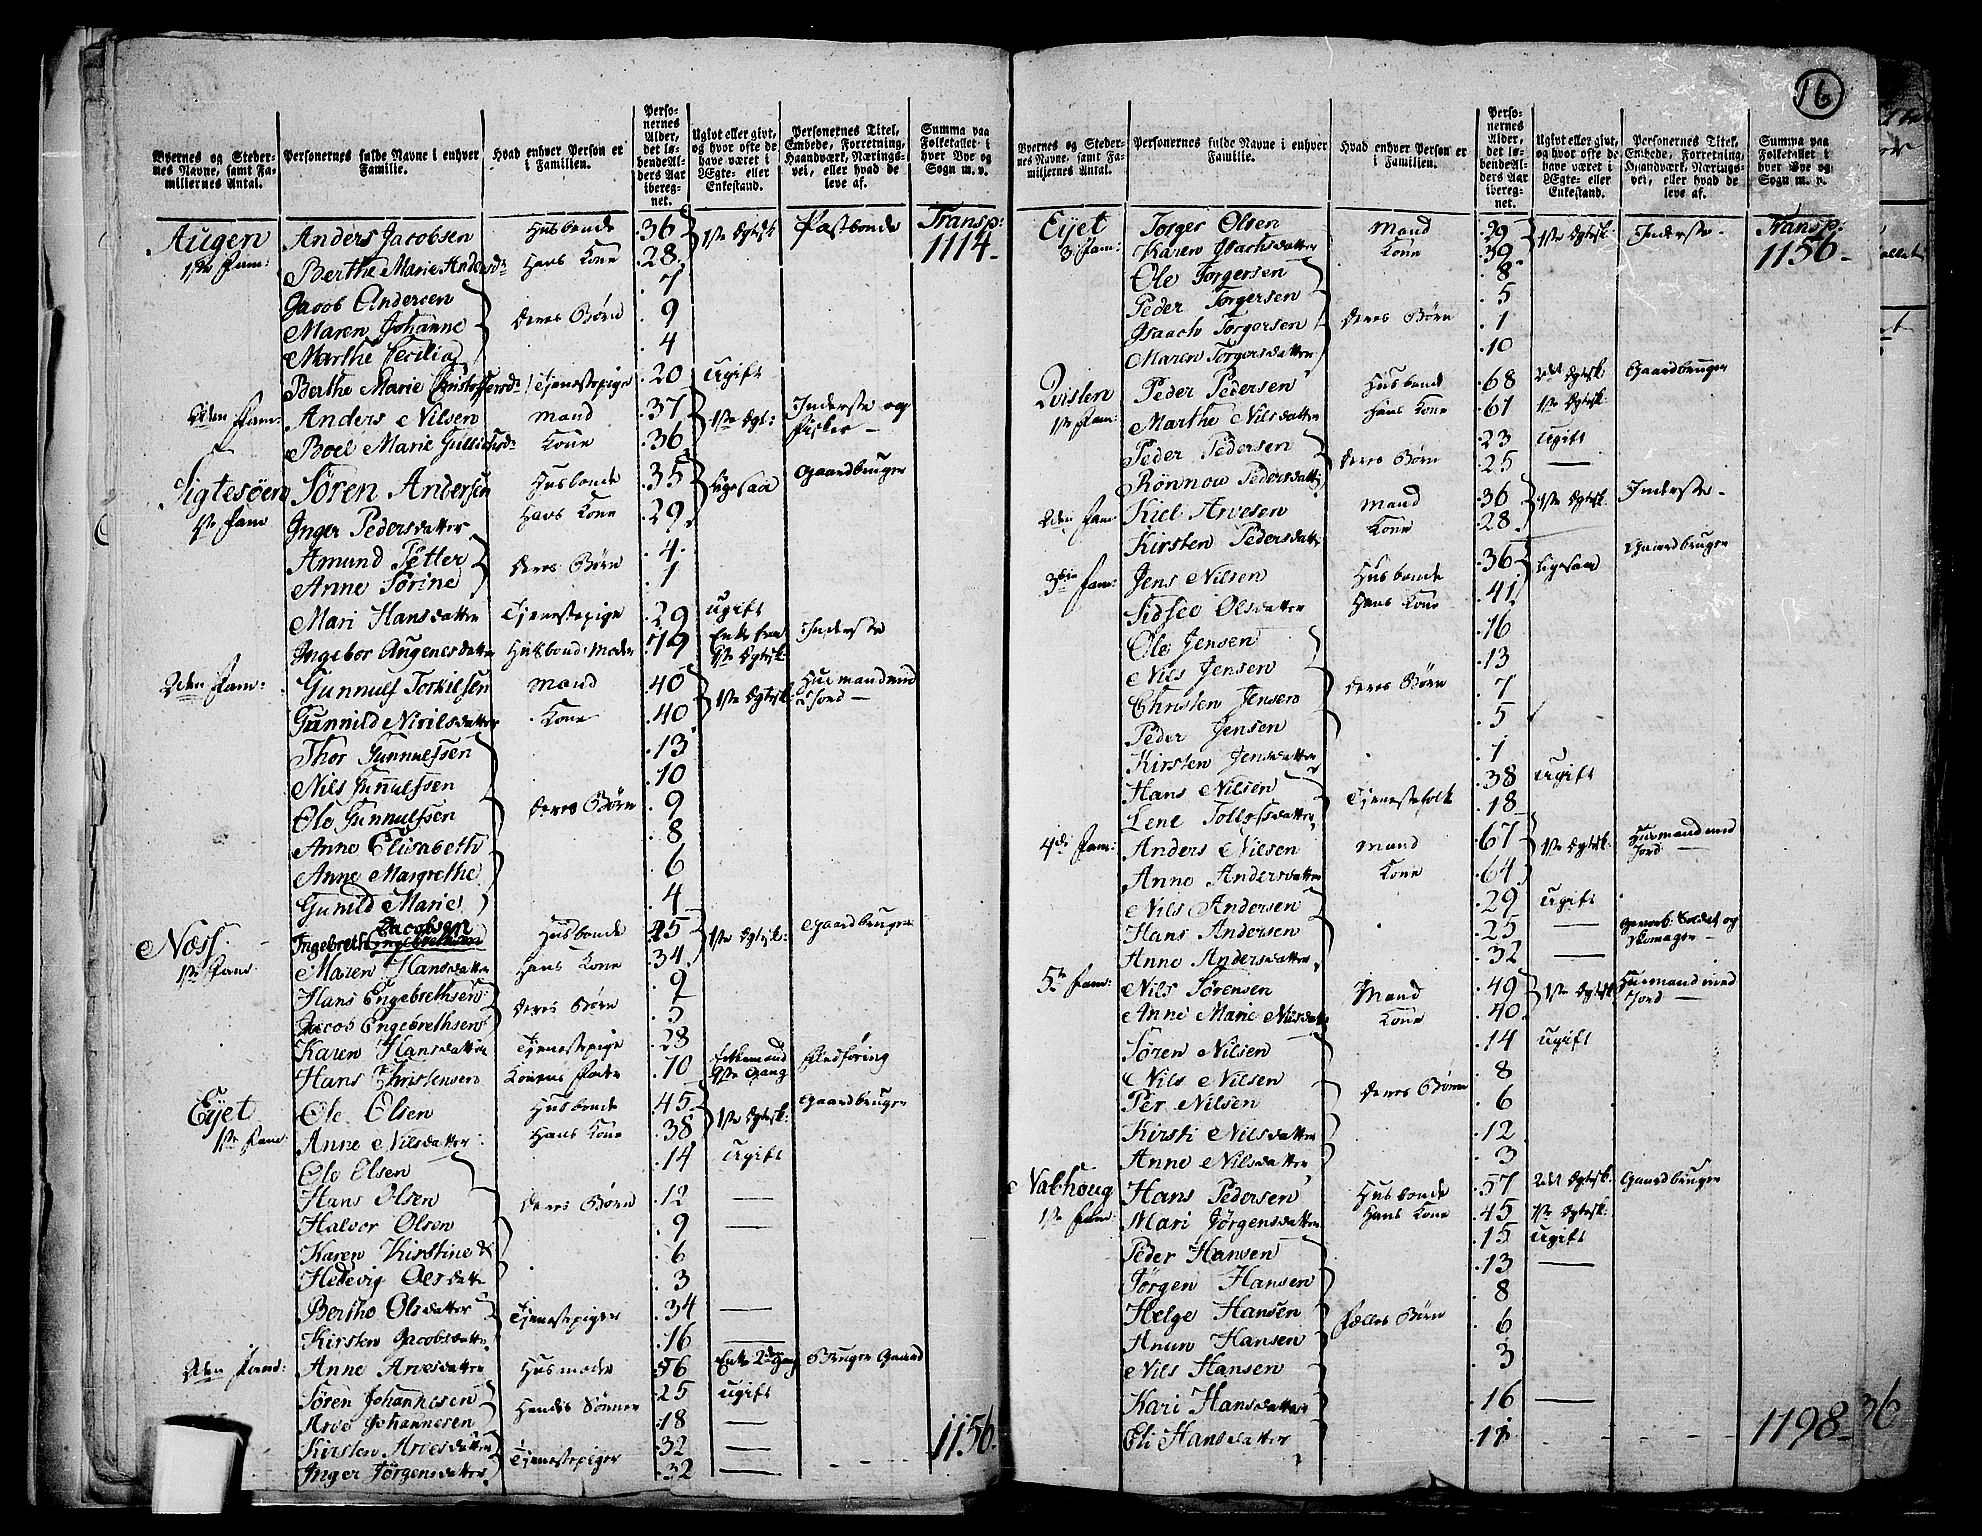 16
Byernes og Steder-nes Navne, samt Fa-miliernes Antal. | Personernes fulde Navne i enhver Familie. | Hvad enhver Person er i Familien. | Perso-nernes Alder, det lø-bende Al-ders Aar iberegnet. | Ugivt eller givt, og hvor ofte de have været i Ægte- eller Enkestand. | Personernes Titel, Embede, Forretning, Haandværk, Nærings-vei, eller hvad de leve af. | Summa paa Folketallet i hver Bye og Sogn m. v.
Augen Anders Jacobsen Husbonde 36 1ste Egtesk Postbonde Transp:
1ste Fam: Berthe Marie Andersdr Hans Kone 28 1114
Jacob Andersen 7
Maren Johanne Deres Børn 9
Marthe Cecilia 4
Berthe Marie Christoffersdr Tjenestepige 20 Ugift
2den Fam: Anders Nilsen Mand 37 1ste Egt: Inderste og
Boel Marie Gullichsdr Kone 36 Fisker
Sigtesøen Sören Andersen Husbonde 35 Ligesaa Gaardbruger
1ste Fam Inger Pedersdatter Hans Kone 29
Amund Petter Deres Børn 4
Anne Sörine 1
Mari Hansdatter Tjenestepige 29 Ugift
Ingebor Augenesdatter Husbond: Moder 79 Enke første 1ste Egtesk Inderste
2den Fam: Gunnulf Torkilsen Mand 40 1ste Egtesk Husmand med Jord
Gunnild Nirilsdatter Kone 40
Thor Gunnulfsen 13
Nils Gunnulfsen 10
Ole Gunnulfsen Deres Børn 9
Anne Elisabeth 8
Anne Margrethe 6
Gunild Marie 4
Næss Ingebreth Jacobsen Husbonde 45 1ste Egtesk: Gaardbruger
1ste Fam: Maren Hansdatter Hans Kone 34
Hans Engebrethsen Deres Børn 9
Jacob Engebrethsen 5
Karen Hansdatter Tjenestepige 28
Hans Christensen Konens Fader 70 Enkemand 1ste Gang Indføring
Eyet Ole Olsen Husbonde 45 1ste Egtesk: Gaardbruger
1ste Fam: Anne Nilsdatter Hans Kone 38
Ole Olsen 14 Ugift
Hans Olsen Deres Børn 12 —
Halvor Olsen 9 —
Karen Kirstine 6
Hedevig Olsdatter 3
Berthe Olsdatter Tjenestepiger 34 —
Kirsten Jacobsdatter 16 —
2den Fam: Anne Arvesdatter Husmoder 56 Enke 2den Gang Bruger Gaard
Sören Johannesen Hendes Sönner 25 Ugift
Arve Johannesen 18 —
Kirsten Arvesdatter Tjenestepiger 32 —
Inger Jörgensdatter 32 — 1156
Byernes og Steder-nes Navne, samt Fa-miliernes Antal. | Personernes fulde Navne i enhver Familie. | Hvad enhver Person er i Familien. | Perso-nernes Alder, det lø-bende Al-ders Aar iberegnet. | Ugivt eller givt, og hvor ofte de have været i Ægte- eller Enkestand. | Personernes Titel, Embede, Forretning, Haandværk, Nærings-vei, eller hvad de leve af. | Summa paa Folketallet i hver Bye og Sogn m. v.
Eyet Torger Olsen Mand 29 1ste Egtesk: Inderste Transp:
3 Fam: Karen Isachsdatter Kone 39 1156
Ole Torgersen 8
Peder Torgersen 5
Isaach Torgersen Deres Børn 1
Maren Torgersdatter 10
Qvisten Peder Pedersen Husbonde 68 2det Egtesk: Gaardbruger
1ste Fam: Marthe Nilsdatter Hans Kone 61 1ste Egtesk:
Peder Pedersen Deres Børn 23 Ugift
Rönnou Pedersdatter 25 —
2den Fam: Kiel Arvesen Mand 36 1ste Egtesk: Inderste
Kirsten Pedersdatter Kone 28
3die Fam: Jens Nilsen Husbonde 36 Ligesaa Gaardbruger
Sidsee Olsdatter Hans Kone 41
Ole Jensen 16
Nils Jensen 13
Christen Jensen Deres Børn 7
Peder Jensen 5
Kirsten Jensdatter 1
Hans Nilsen Tjenestefolk 38 Ugift
Lene Tollefsdatter 18
4de Fam: Anders Nilsen Mand 67 1ste Egtesk: Husmand med Jord
Anne Andersdatter Kone 64
Nils Andersen 29 Ugift
Hans Andersen 25 — Soldat og Skomager
Anne Andersdatter 32 —
5te Fam: Nils Sörensen Mand 49 1ste Egtesk: Husmand med Jord
Anne Marie Nilsdatter Kone 40
Sören Nilsen 14 Ugift
Nils Nilsen 8
Per Nilsen Deres Børn 6
Kirsti Nilsdatter 12
Anne Nilsdatter 3
Valhoug Hans Pedersen Husbonde 57 2det Egtesk: Gaardbruger
1ste Fam: Mari Jörgensdatter Hans Kone 45 1ste Egtesk:
Peder Hansen 15 Ugift
Jörgen Hansen 13 —
Helge Hansen Fælles Børn 8
Anun Hansen 6
Nils Hansen 3
Kari Hansdatter 16 —
Eli Hansdatter 11 1198 36